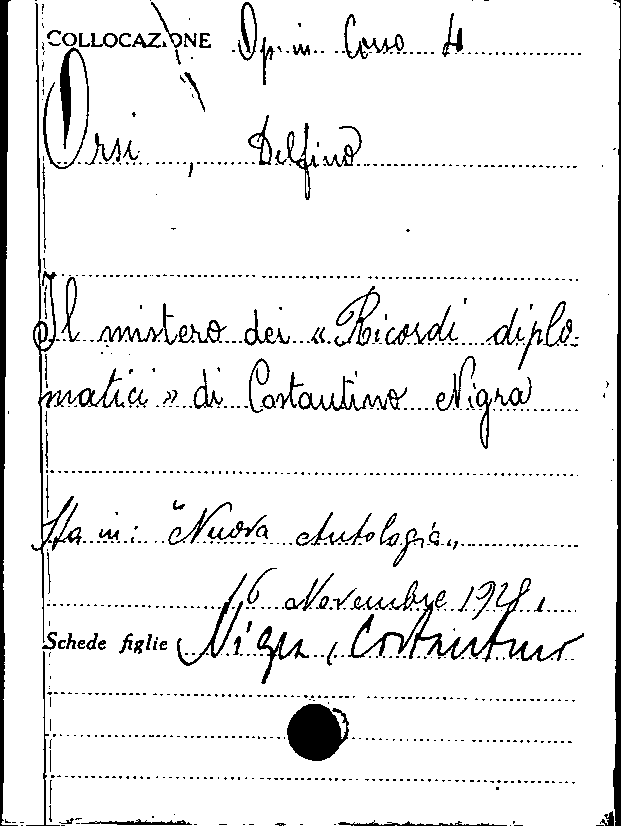 COLLOCAZIONE Op. in Corso 4
Orsi, Delfino
Il mistero dei « Ricordi diplo-
matici » di Costantino Nigra
Sta in: "Nuova Antologia"
16 Novembre 1928.
Schede figlie Nigra, Costantino